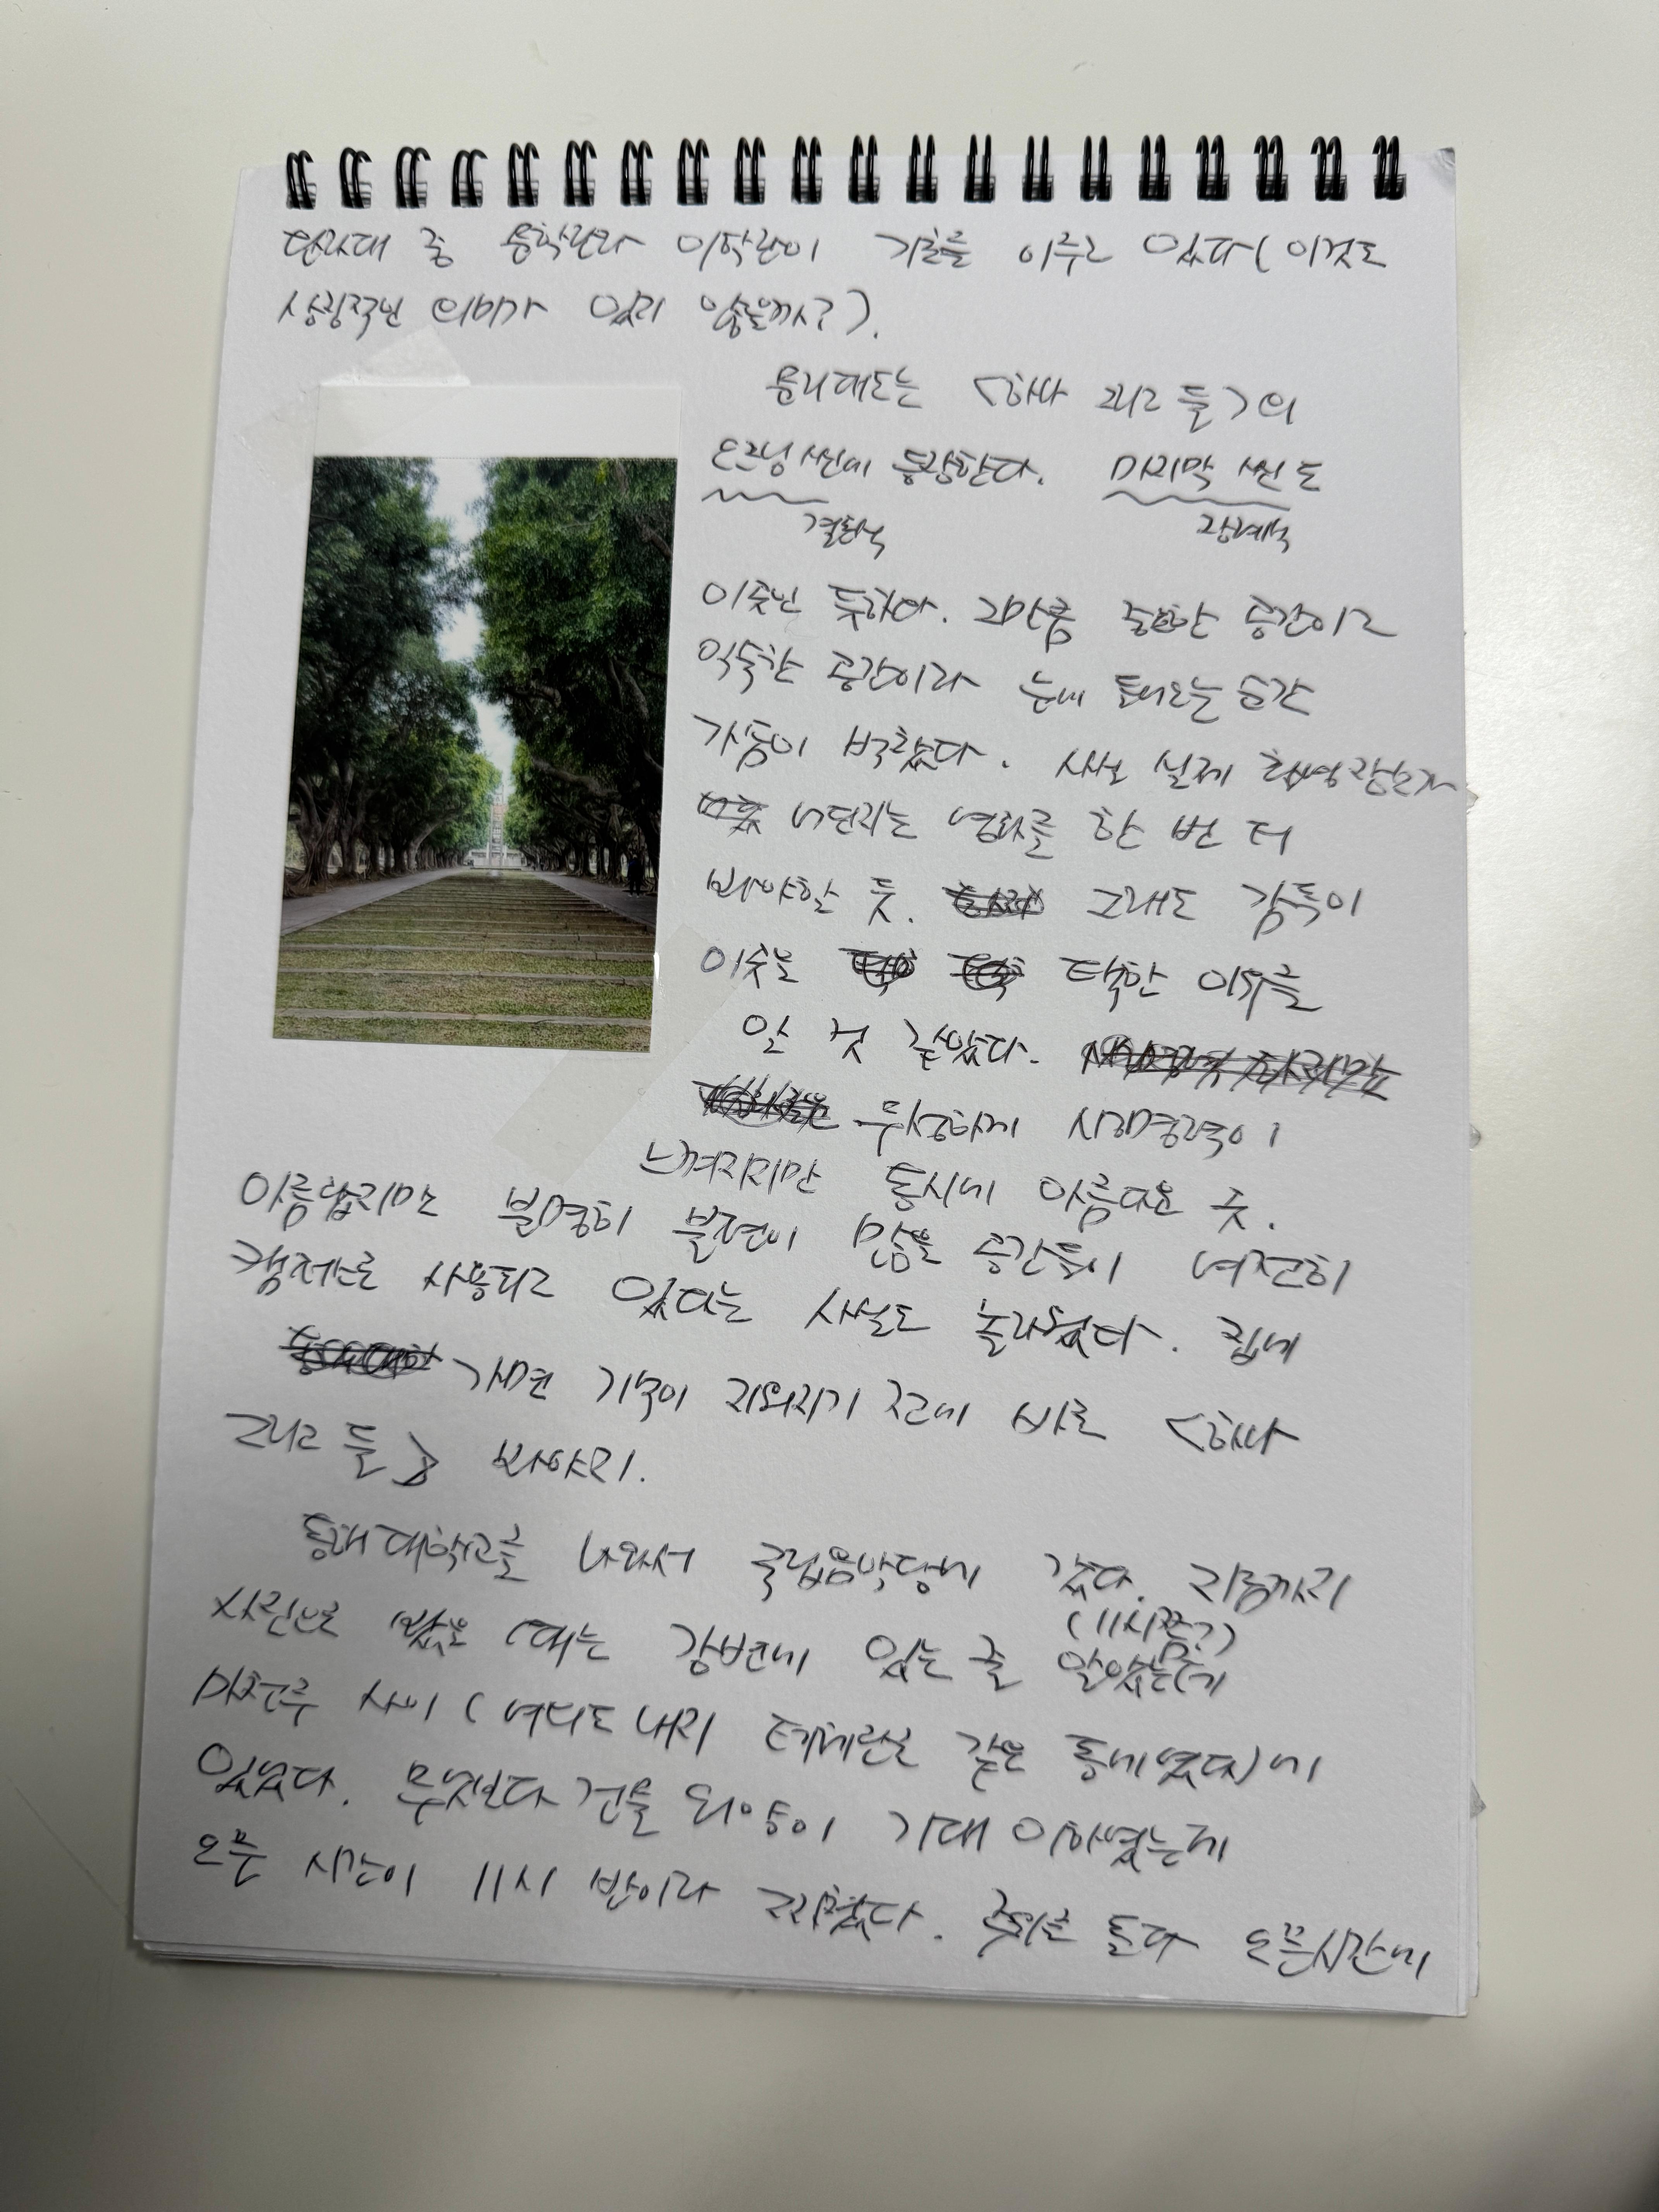 단과대 중 문학관과 이학관이 기초를 이루고 있다(이것도
상징적인 의미가 있지 않을까?).
윤리대도는 <하나 그리고 둘>의
오프닝 씬에 등장한다. 마지막 씬도
결혼식 장례식
이곳인 듯하다. 그만큼 중요한 공간이고
익숙한 공간이라 눈에 들어오는 순간
가슴이 벅찼다. 사실 실제 촬영장소가
어딘지는 영화를 한 번 더
봐야할 듯. 그래도 감독이
이곳을 택한 이유를
알 것 같았다. 무성하게 생명력이
느껴지지만 동시에 아름다운 곳.
아름답지만 분명히 불편이 많을 공간들이 여전히
캠퍼스로 사용되고 있다는 사실도 놀라웠다. 집에
가면 기억이 지워지기 전에 바로 <하나
그리고 둘> 봐야지.
동해대학교를 나와서 국립음악당에 갔다. 지금까지
(11시쯤?)
사진으로 봤을 때는 강변에 있는 줄 알았는데
마천루 사이(여의도 내지 테헤란로 같은 동네였다)에
있었다. 무엇보다 건물 외양이 기대 이하였는데
오픈 시간이 11시 반이라 그러했다. 주위를 돌다 오픈시간에